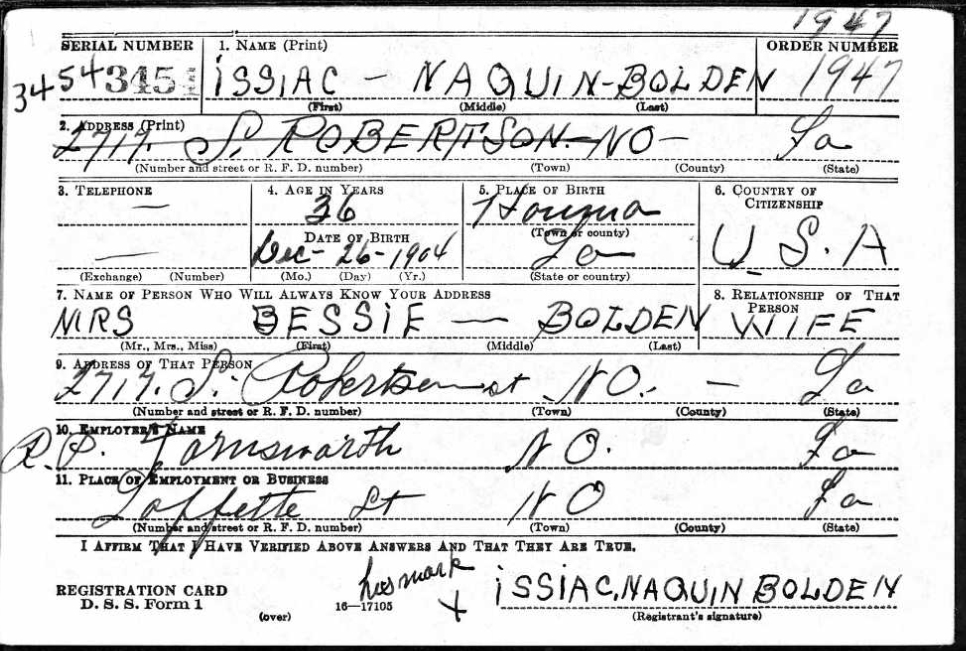 1947
SERIAL NUMBER 1. NAME (Print) ORDER NUMBER
3454 345 ISSIAC — NAQUIN-BOLDEN 1947
(First) (Middle) (Last)
2. ADDRESS (Print)
2717. S. ROBERTSON-NO- La
(Number and street or R. F. D. number) (Town) (County) (State)
3. TELEPHONE 4. AGE IN YEARS 5. PLACE OF BIRTH 6. COUNTRY OF CITIZENSHIP
— 36 Houma U.S.A
DATE OF BIRTH (Town or county)
— Dec-26-1904 La
(Exchange) (Number) (Mo.) (Day) (Yr.) (State or country)
7. NAME OF PERSON WHO WILL ALWAYS KNOW YOUR ADDRESS 8. RELATIONSHIP OF THAT PERSON
MRS BESSIE — BOLDEN WIFE
(Mr., Mrs., Miss) (First) (Middle) (Last)
9. ADDRESS OF THAT PERSON
2717. S. Robertson st NO. — La
(Number and street or R. F. D. number) (Town) (County) (State)
10. EMPLOYER'S NAME
R. P. Farnsworth NO. La
11. PLACE OF EMPLOYMENT OR BUSINESS
Laffette St NO La
(Number and street or R. F. D. number) (Town) (County) (State)
I AFFIRM THAT I HAVE VERIFIED ABOVE ANSWERS AND THAT THEY ARE TRUE.
his mark
REGISTRATION CARD X ISSIAC.NAQUIN BOLDEN
D. S. S. Form 1 16—17105 (Registrant's signature)
(over)